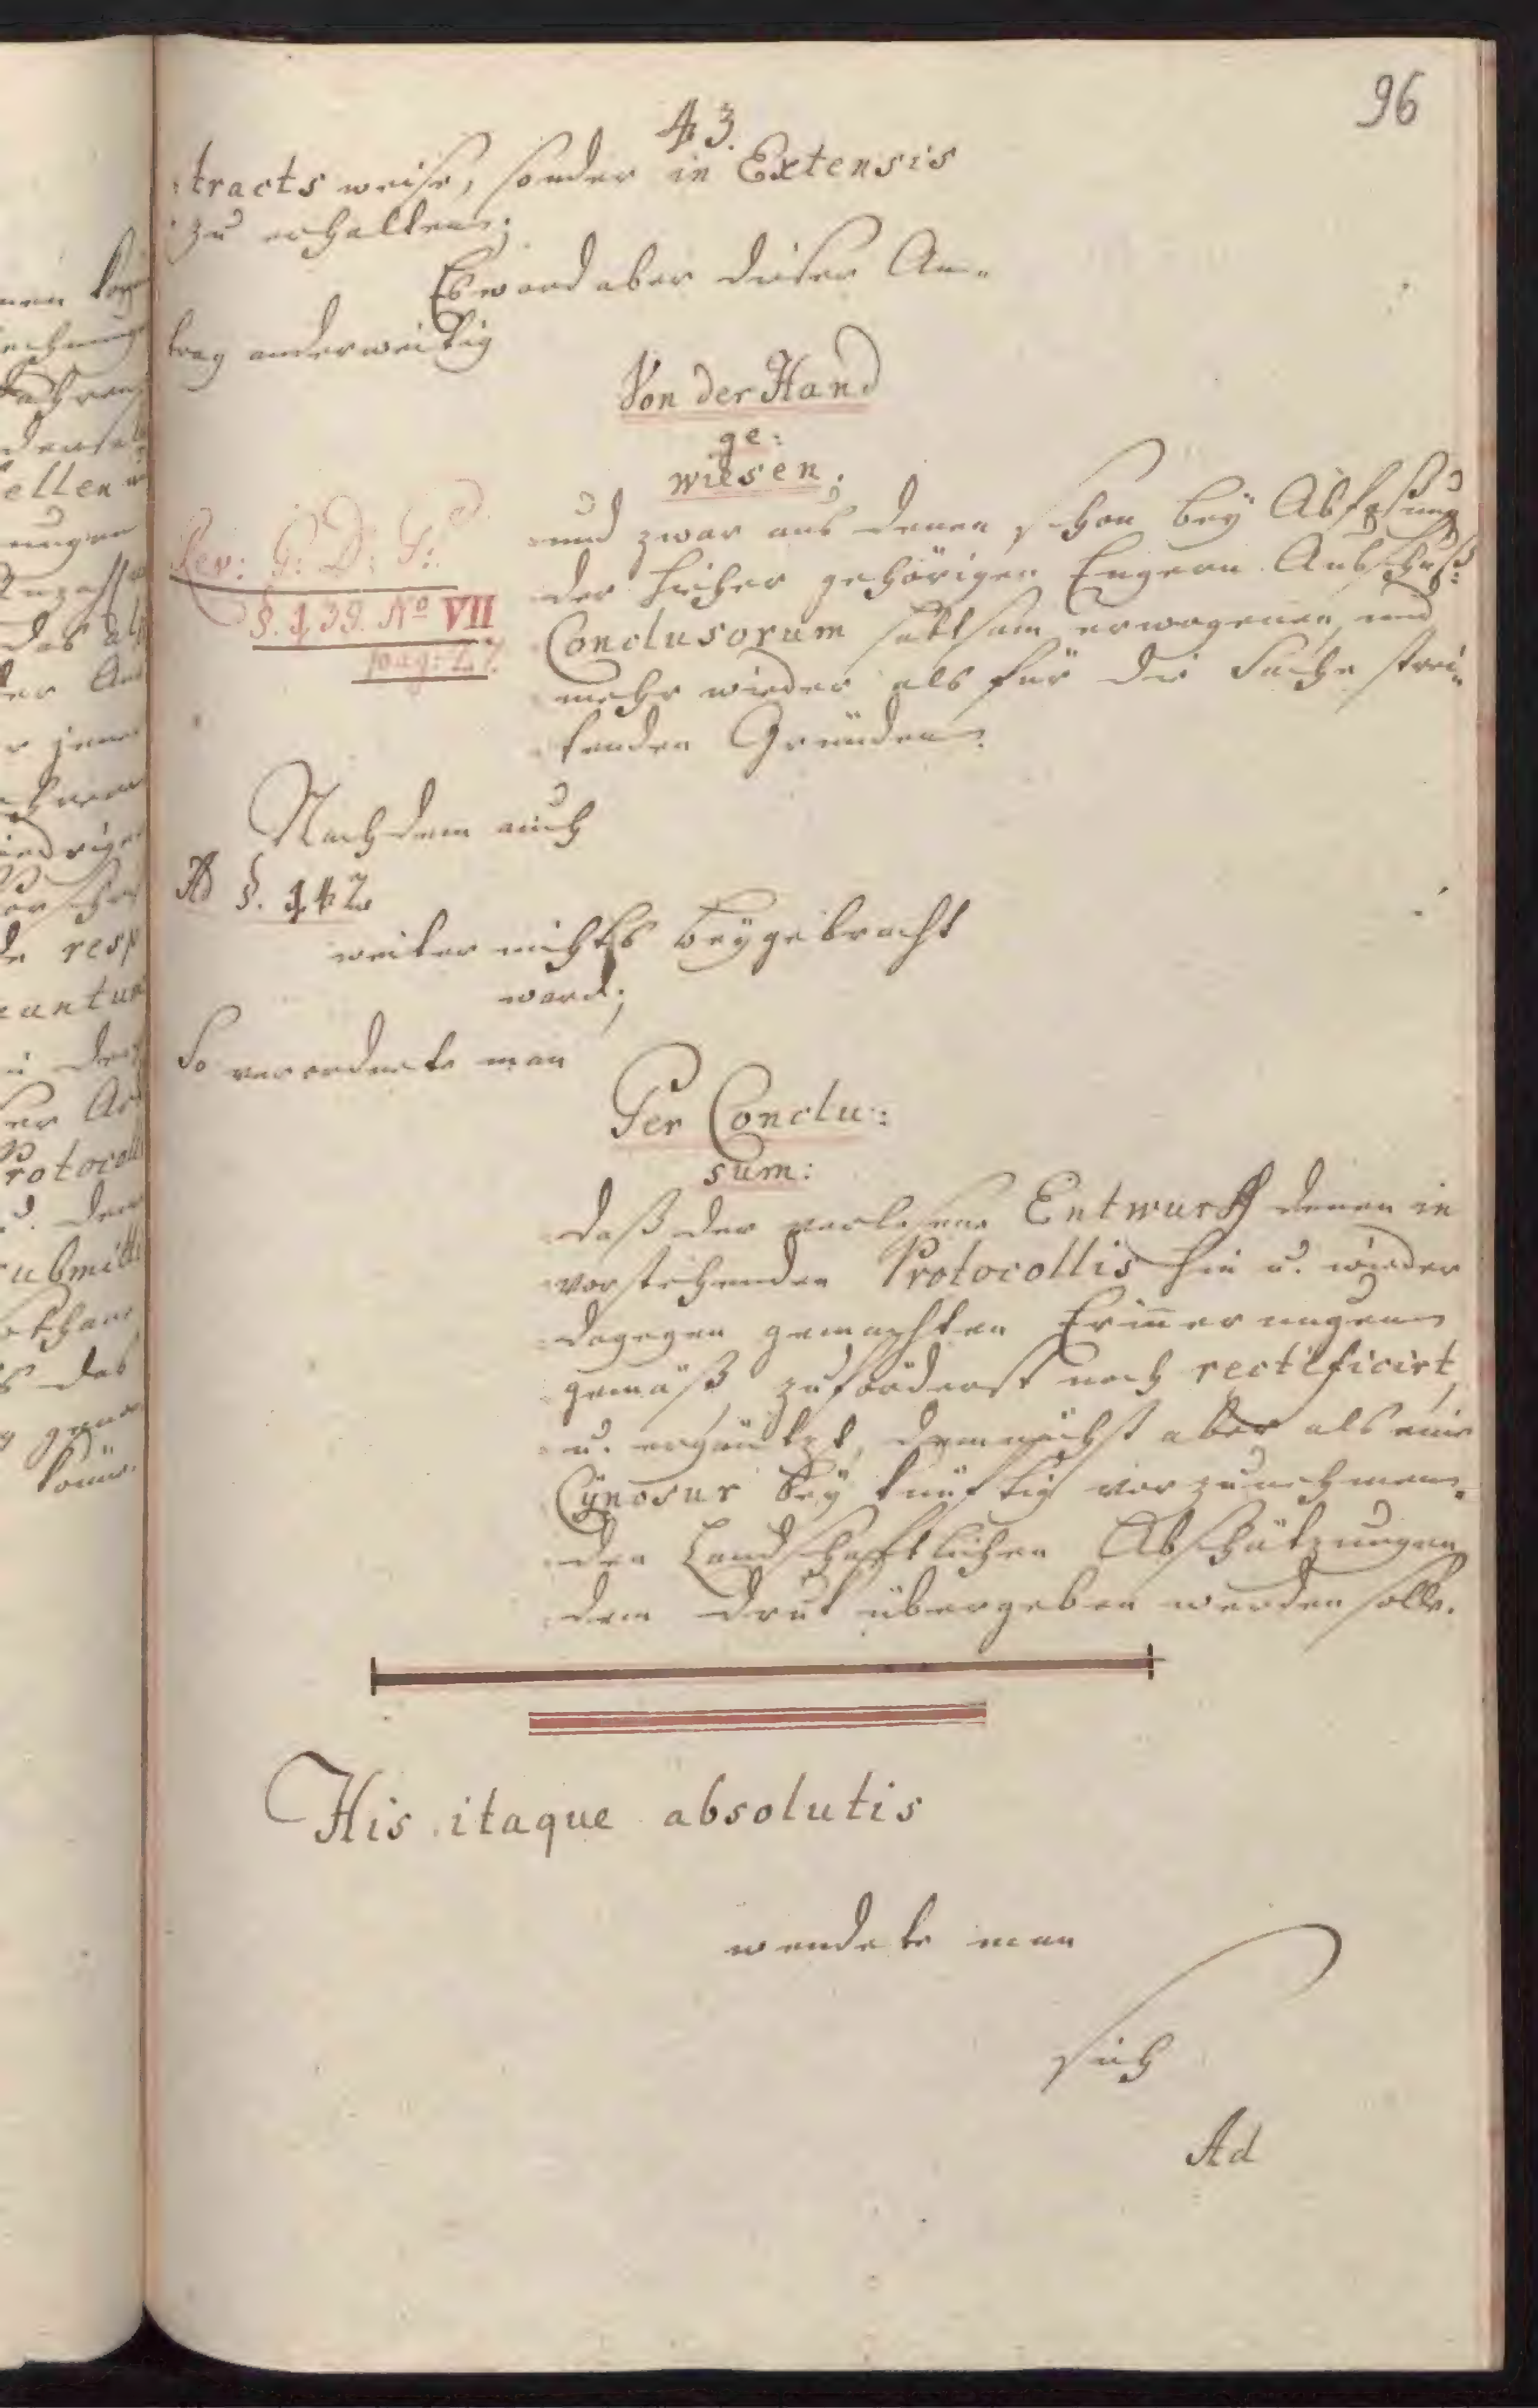 96
43.
tracts weise, sonder in Extensis
zu erhalten;
Es ward aber dieser An-
trag anderweitig
Von der Hand
ge:
wiesen;
und zwar aus denen schon bey Abfaßung
der hieher gehörigen Engern Ausschuß-
Conclusorum sattsam erwogenen, und
mehr wieder als für die Sache strei-
tenden Gründen.
Rev: G: D: S:
§. 139. No VII
pag: 27.
Nachdem auch
Ad §. 142
weiter nichts beygebracht
ward;
So verordnete man
Per Conclu:
sum:
daß der verlesene Entwurff denen in
vorstehenden Protocollis hin u. wieder
dagegen gemachten Erinnerungen
gemäß, zuförderst noch rectificirt,
u. ergäntzt, demnächst aber als eine
Cynosur bey künftig vorzunehmen-
den Landschaftlichen Abschätzungen
dem Druk übergeben werden solle.
His itaque absolutis
wendete man
sich
Ad